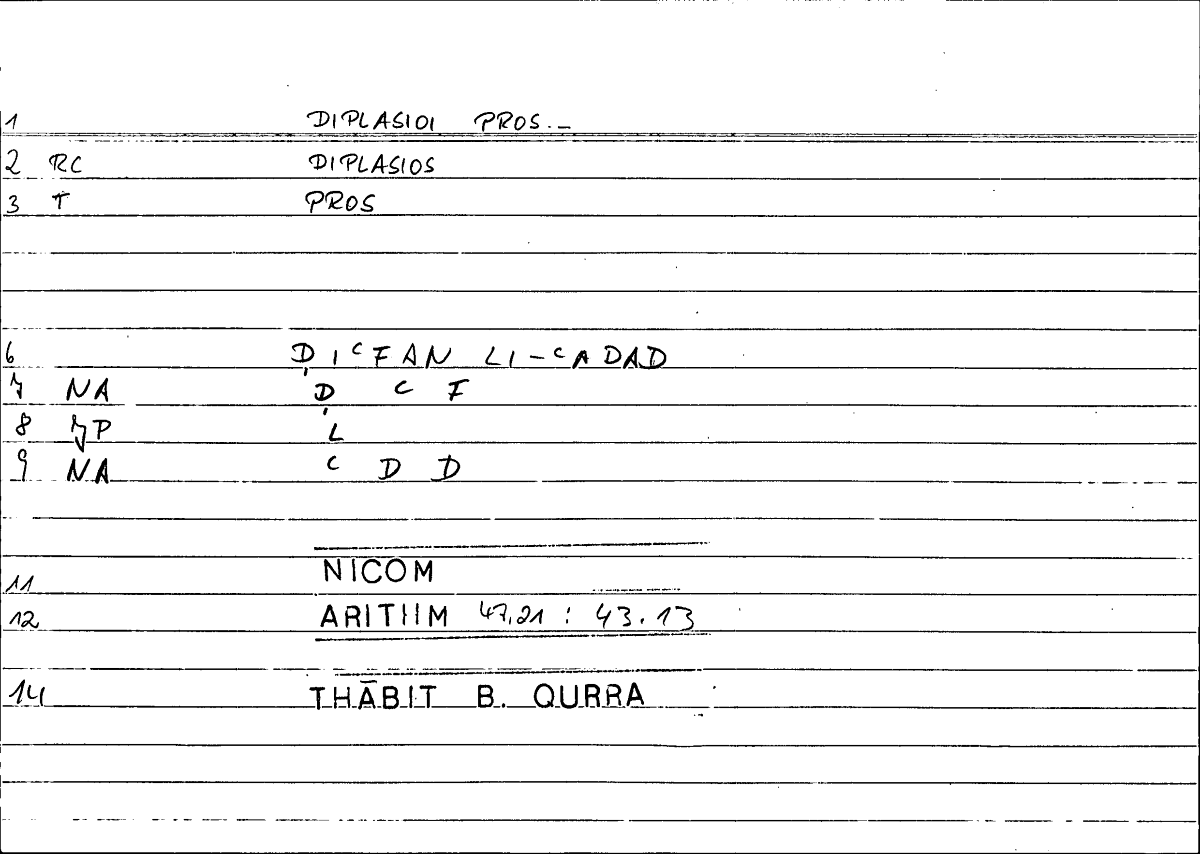 1 DIPLASIOI PROS._
2 RC DIPLASIOS
3 T PROS
6 ḌICFAN LI-CADAD
7 NA Ḍ C F
8 7P L
9 NA C D D
11 NICOM
12 ARITHM 47,21 : 43.13
14 THĀBIT B. QURRA